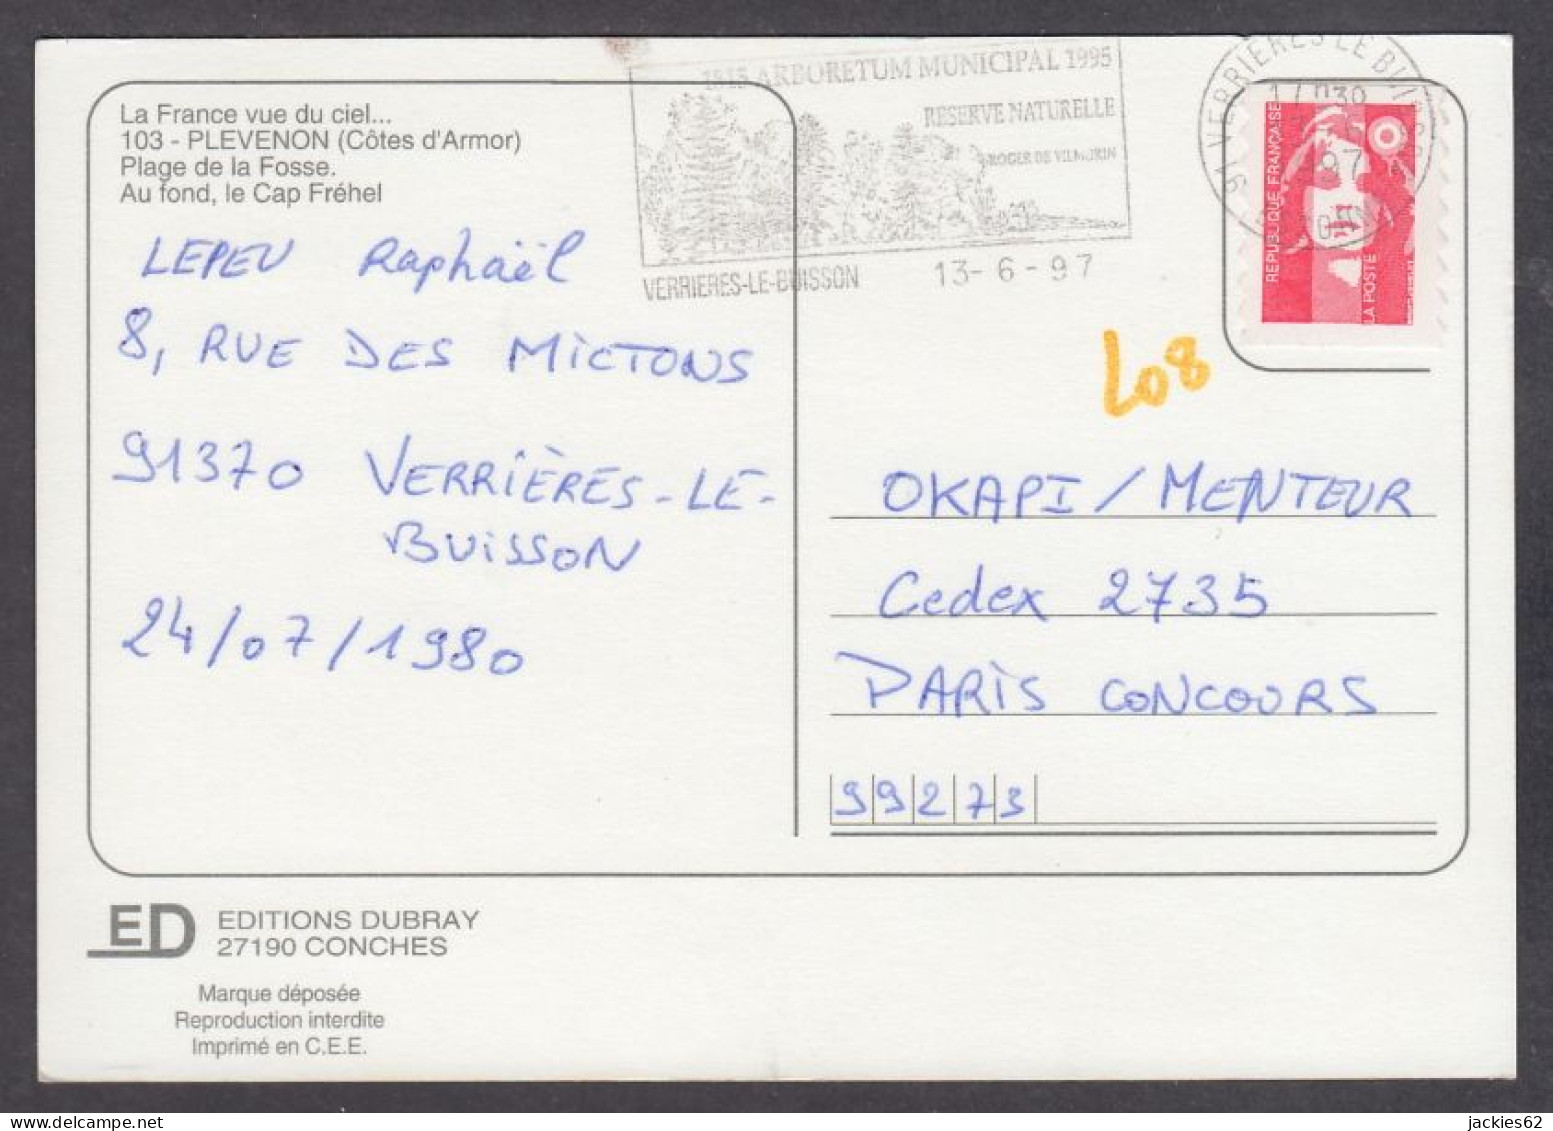 La France vue du ciel...
103 - PLEVENON (Côtes d'Armor)
Plage de la Fosse.
Au fond, le Cap Fréhel
1815 ARBORETUM MUNICIPAL 1995
RESERVE NATURELLE
ROGER DE VILMORIN
VERRIERES-LE-BUISSON 13-6-97
91 VERRIERES LE BUISSON
REPUBLIQUE FRANÇAISE
LA POSTE
LEPEU Raphaël
8, RUE DES MICTONS
91370 VERRIÈRES-LE-
BUISSON
24/07/1980
L08
OKAPI/MENTEUR
Cedex 2735
PARIS CONCOURS
99273
ED EDITIONS DUBRAY
27190 CONCHES
Marque déposée
Reproduction interdite
Imprimé en C.E.E.
jackies62